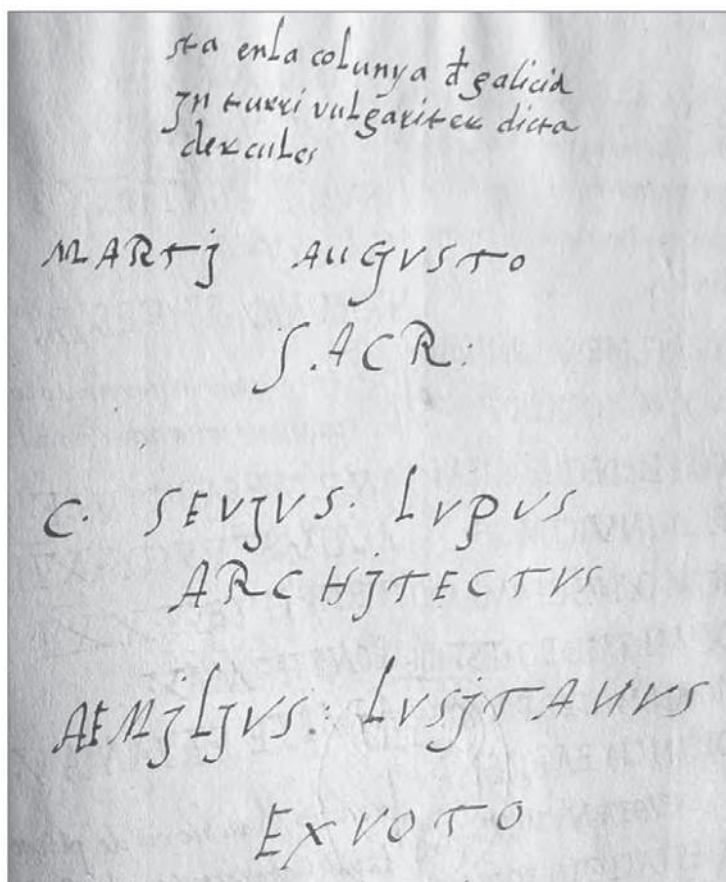 sta enla colunya đ galicia
jn turri vulgariter dicta
dercules
MARTj AUGVSTO
S.ACR:
C. SEVJVS. LVPVS
ARCHjTECTVS
AEMjLJVS: LVSjTANVS
EXVOTO